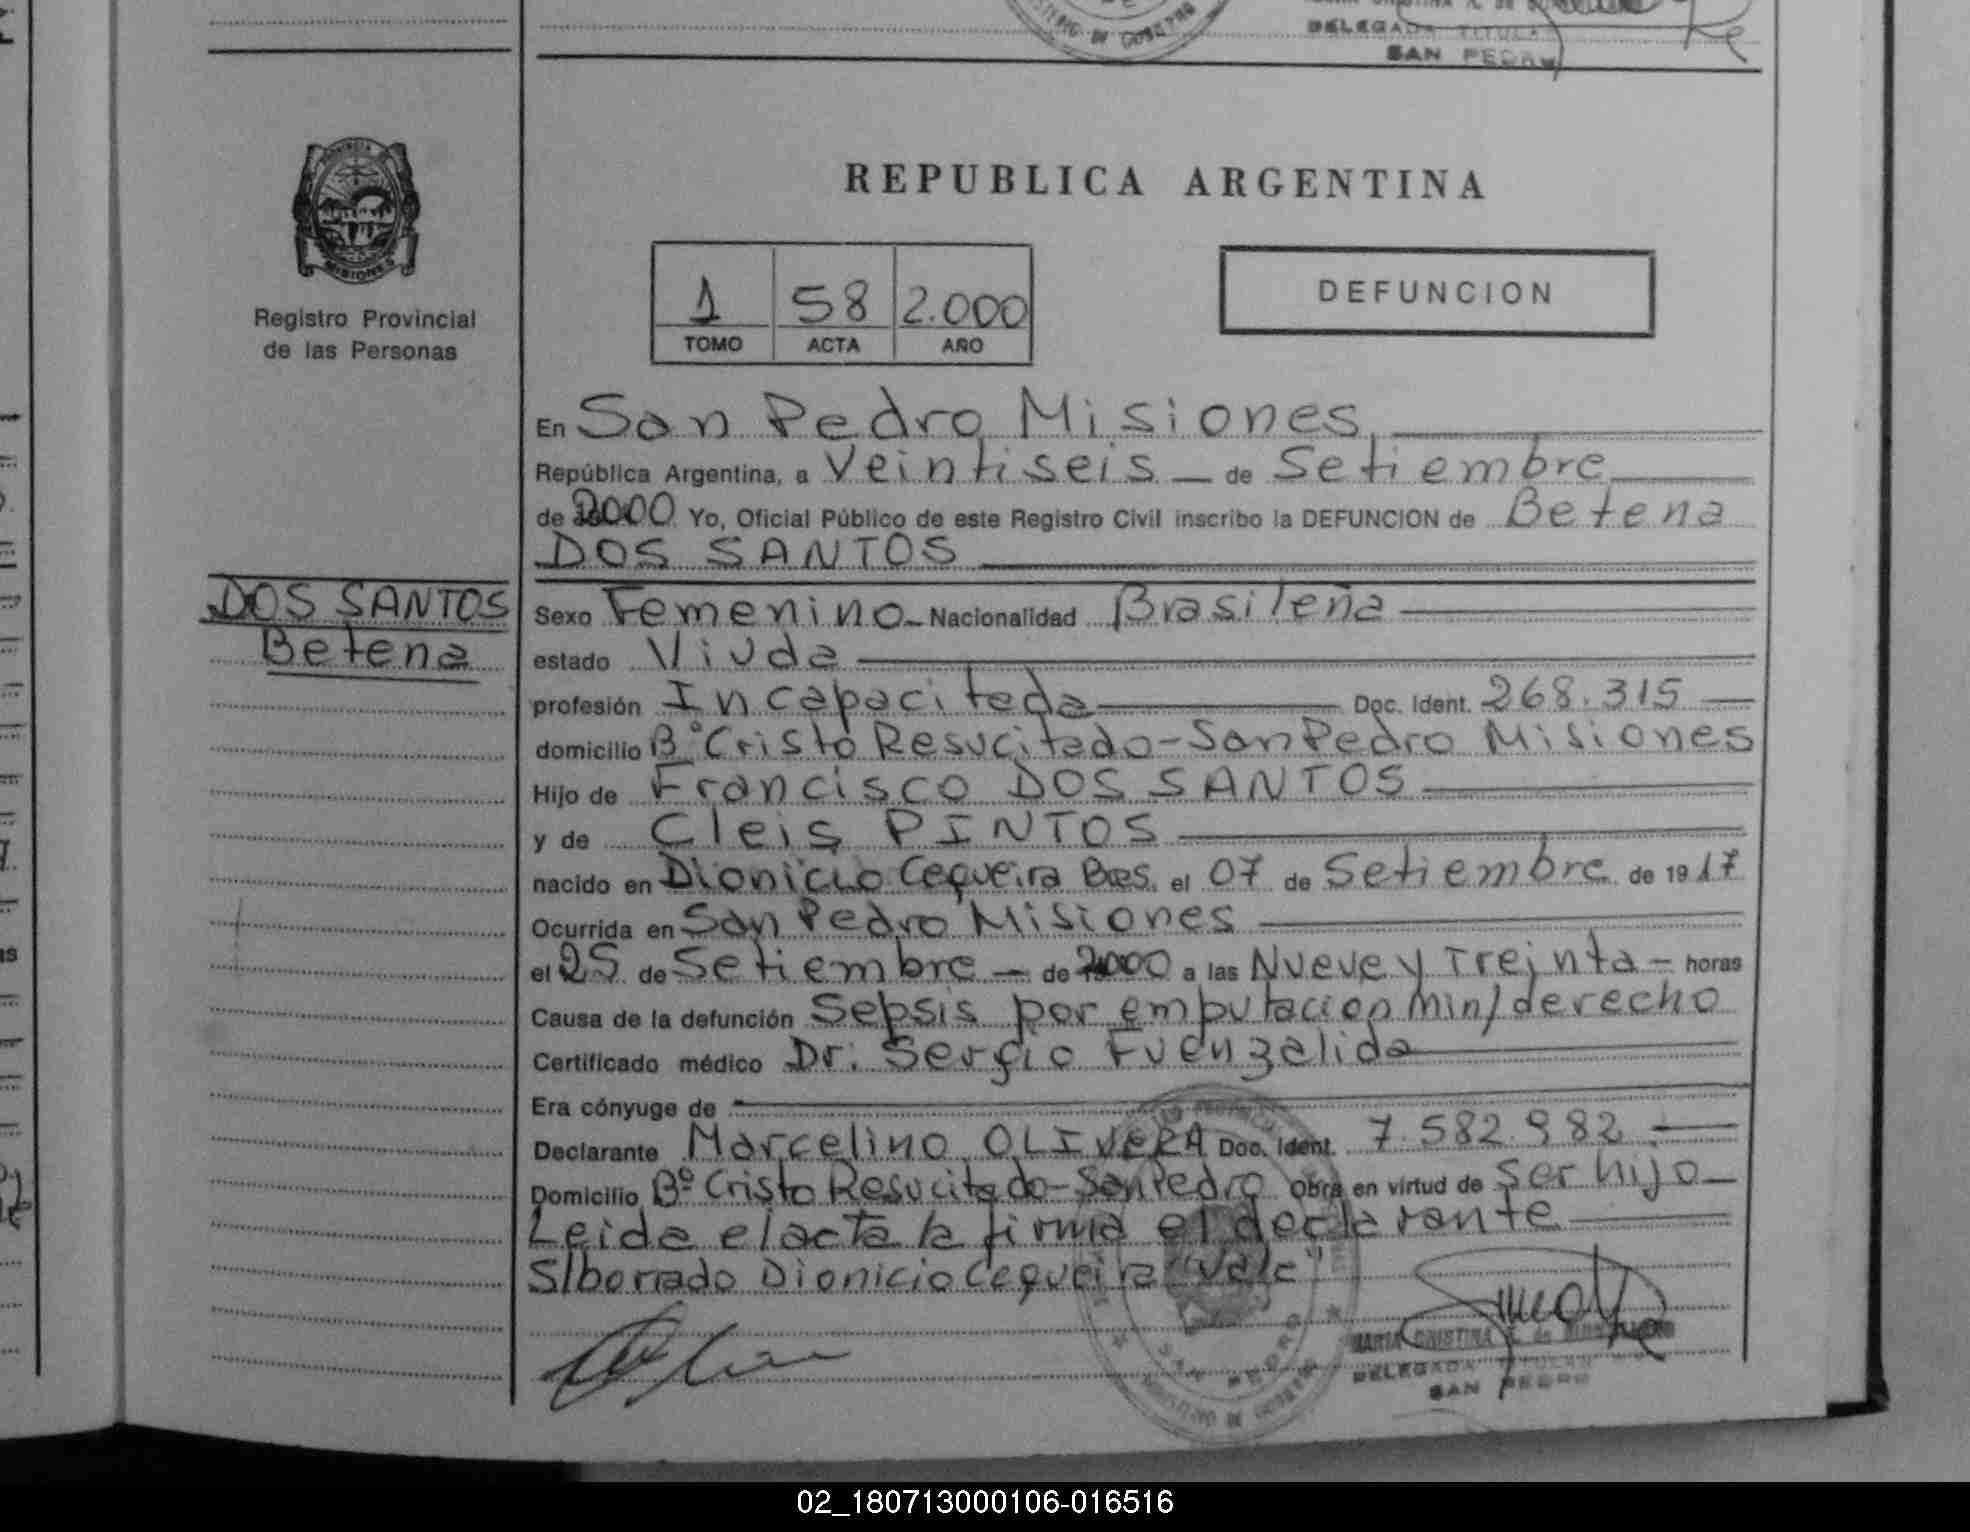 DELEGADA TITULAR
SAN PEDRO
REPUBLICA ARGENTINA
PROVINCIA DE
MISIONES
Registro Provincial
de las Personas
1 58 2.000
TOMO ACTA AÑO
DEFUNCION
En San Pedro Misiones
República Argentina, a Veintiseis de Setiembre
de 2000 Yo, Oficial Público de este Registro Civil inscribo la DEFUNCION de Betena
DOS SANTOS
DOS SANTOS
Betena
Sexo Femenino Nacionalidad Brasileña
estado Viuda
profesión Incapacitada Doc. Ident. 268.315
domicilio Bº Cristo Resucitado - San Pedro Misiones
Hijo de Francisco DOS SANTOS
y de Cleis PINTOS
nacido en Dionicio Cequeira Bras. el 07 de Setiembre de 1917
Ocurrida en San Pedro Misiones
el 25 de Setiembre de 2000 a las Nueve y Treinta horas
Causa de la defunción Sepsis por emputacion Min/derecho
Certificado médico Dr: Sergio Fuenzalida
Era cónyuge de
Declarante Marcelino OLIVERA Doc. Ident. 7.582.982
Domicilio Bº Cristo Resucitado - San Pedro Obra en virtud de ser hijo
Leida el acta la firma el declarante
S/borrado Dionicio Cequeira "Vale"
SAN PEDRO
MARIA CRISTINA
DELEGADA TITULAR
SAN PEDRO
02_180713000106-016516